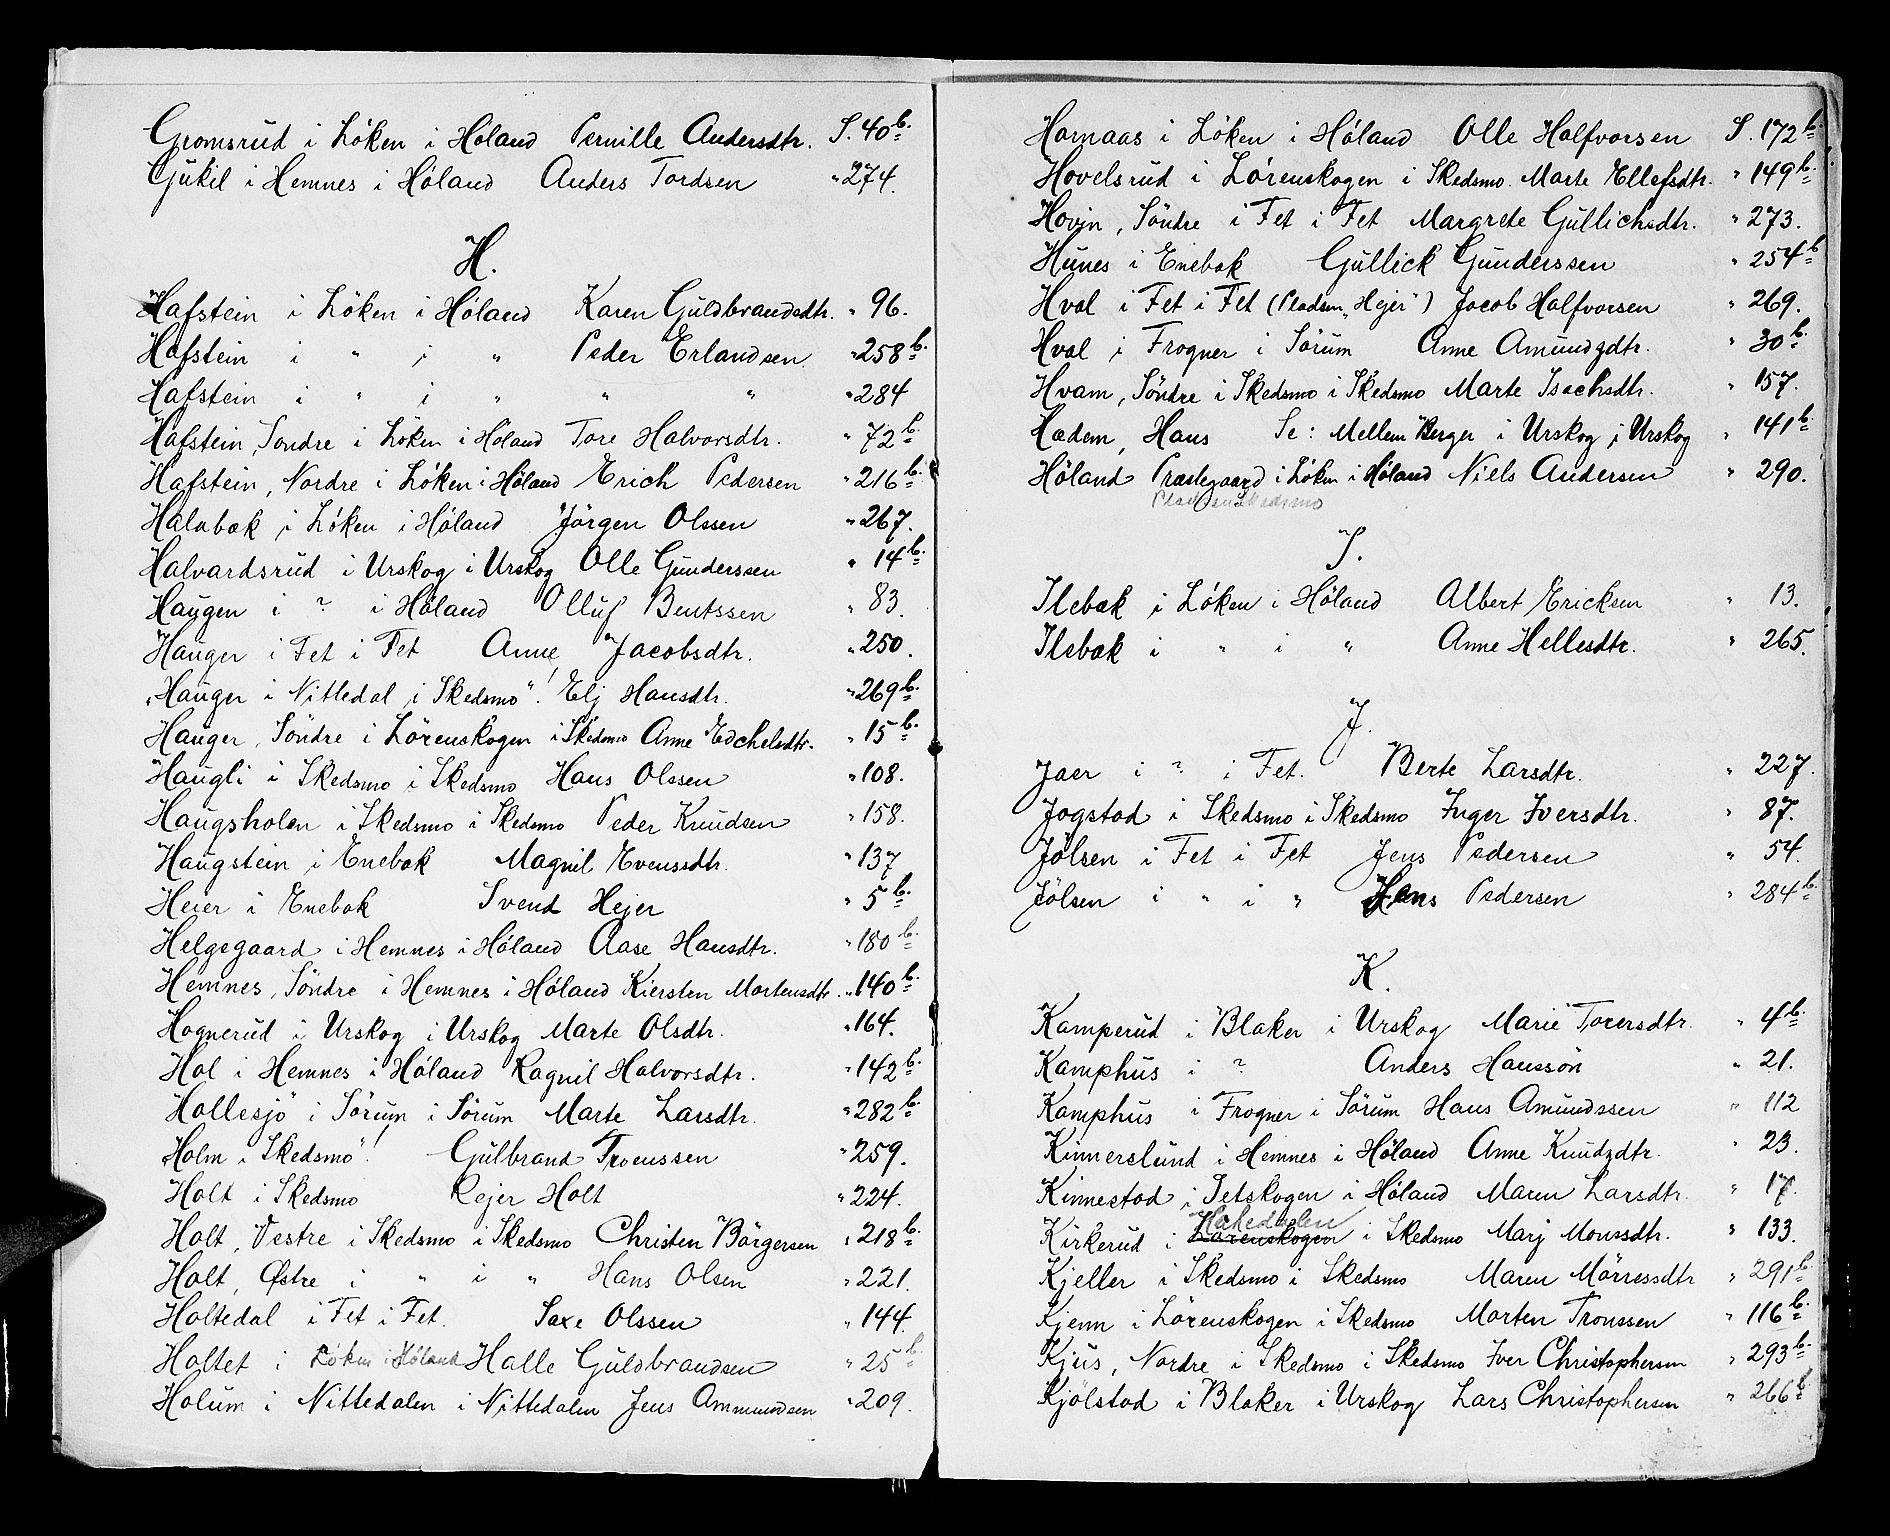 Gromsrud i Löken i Höland Pernille Andersdtr. S. 40b.
Gukil i Hemnes i Höland Anders Tordsen " 274.
H.
Hafstein i Löken i Höland Karen Guldbrandsdtr. " 96.
Hafstein i " i " Peder Erlandsen " 258b.
Hafstein i " i " " " " 284
Hafstein, Söndre i Löken i Höland Tore Halvorsdtr. " 72b.
Hafstein, Nordre i Löken i Höland Erich Pedersen " 216b.
Halabæk i Löken i Höland Jörgen Olssen " 267.
Halvardsrud i Urskog i Urskog Olle Gunderssen " 14b.
Haugen i ? i Höland Olluf Bentssen " 83.
Hauger i Fet i Fet Anne Jacobsdtr. " 250.
„Hauger i Nittedal i Skedsmo"! Elj Hansdtr. " 269b.
Hauger, Söndre i Lörenskogen i Skedsmo Anne Edchelsdtr. " 15b.
Haugli i Skedsmo i Skedsmo Hans Olssen " 108.
Haugsholen i Skedsmo i Skedsmo Peder Knudsen " 158.
Haugstein i Enebak Magnil Evenssdtr. " 137
Heier i Enebak Svend Hejer " 5b.
Helgegaard i Hemnes i Höland Aase Hansdtr. " 180b.
Hemnes, Söndre i Hemnes i Höland Kiersten Mortensdtr. " 140b.
Hognerud i Urskog i Urskog Marte Olsdtr. " 164.
Hol i Hemnes i Höland Ragnil Halvorsdtr. " 142b.
Hollesjö i Sörum i Sörum Marte Larsdtr. " 282b.
„Holm i Skedsmo"! Gulbrand Troenssen " 259.
Holt i Skedsmo Rejer Holt " 224.
Holt, Vestre i Skedsmo i Skedsmo Christen Börgersen " 218b.
Holt, Østre i " i " Hans Olsen " 221.
Holtedal i Fet i Fet. Saxe Olssen " 144.
Holtet i Löken i Höland Halle Guldbrandsen " 25b.
Holum i Nittedalen i Nittedalen Jens Ammundsen " 209.
Hornaas i Löken i Höland Olle Halfvorsen S. 172b.
Hovelsrud i Lörenskogen i Skedsmo Marte Ellefsdtr. " 149b.
Hovin, Söndre i Fet i Fet Margrete Gullichsdtr. " 273.
Hunes i Enebak Gullick Gunderssen " 254b
Hval i Fet i Fet (Pladsen „Hejer") Jacob Halfvorsen " 269.
Hval i Frogner i Sörum Anne Amundzdtr. " 30b.
Hvam, Söndre i Skedsmo i Skedsmo Marte Isachsdtr. " 157.
Hædem, Hans Se: Mellem Berger i Urskog i Urskog " 141b.
Höland Præstegaard i Löken i Höland Niels Andersen " 290.
Skedsmo
I.
Ilebæk i Löken i Höland Albert Ericksen " 13.
Ilebæk i " i " Anne Hellesdtr. " 265.
J.
Jaer i ? i Fet. Berte Larsdtr. " 227.
Jogstad i Skedsmo i Skedsmo Inger Iversdtr. " 87.
Jölsen i Fet i Fet Jens Pedersen " 54.
Jölsen i " i " Hans Pedersen " 284b.
K.
Kamperud i Blaker i Urskog Marie Torersdtr. " 4b.
Kamphus i ? Anders Hanssön " 21.
Kamphus i Frogner i Sörum Hans Amundssen " 112
Kinnerslund i Hemnes i Höland Anne Knudzdtr. " 23.
Kinnestad i Setskogen i Höland Maren Larsdtr. " 17.
Hakedalen
Kirkerud i Lörenskogen i Skedsmo Marj Monssdtr. " 133.
Kjeller i Skedsmo i Skedsmo Maren Mörressdtr " 291b.
Kjenn i Lörenskogen i Skedsmo Morten Tronssen " 116b.
Kjus, Nordre i Skedsmo i Skedsmo Iver Christophersen " 293b.
Kjölstad i Blaker i Urskog Lars Christophersen " 266b.